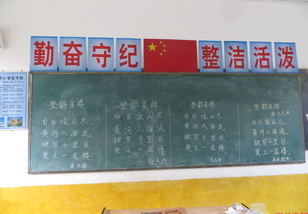 勤奋守纪
整洁活泼
登鹳雀楼
白日依山尽
黄河入海流
欲穷千里目
更上一层楼
登鹳雀楼
白日依山尽
黄河入海流
欲穷千里目
更上一层楼
登鹳雀楼
白日依山尽
黄河入海流
欲穷千里目
更上一层楼
登鹳雀楼
白日依山尽
黄河入海流
欲穷千里目
更上一层楼